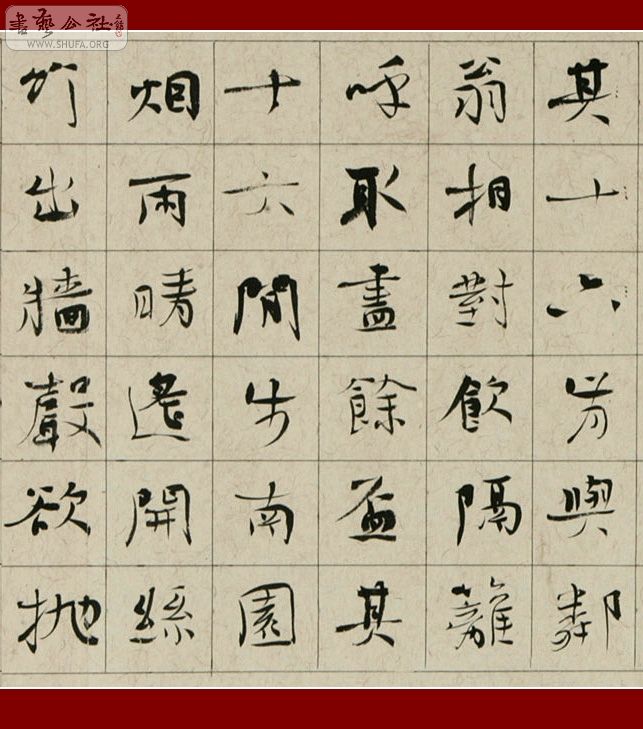 書藝公社
WWW.SHUFA.ORG
其十六肯與鄰
翁相對飲隔籬
呼取盡餘盃其
十六閒步南園
烟雨晴遙開絲
竹出牆聲欲拋